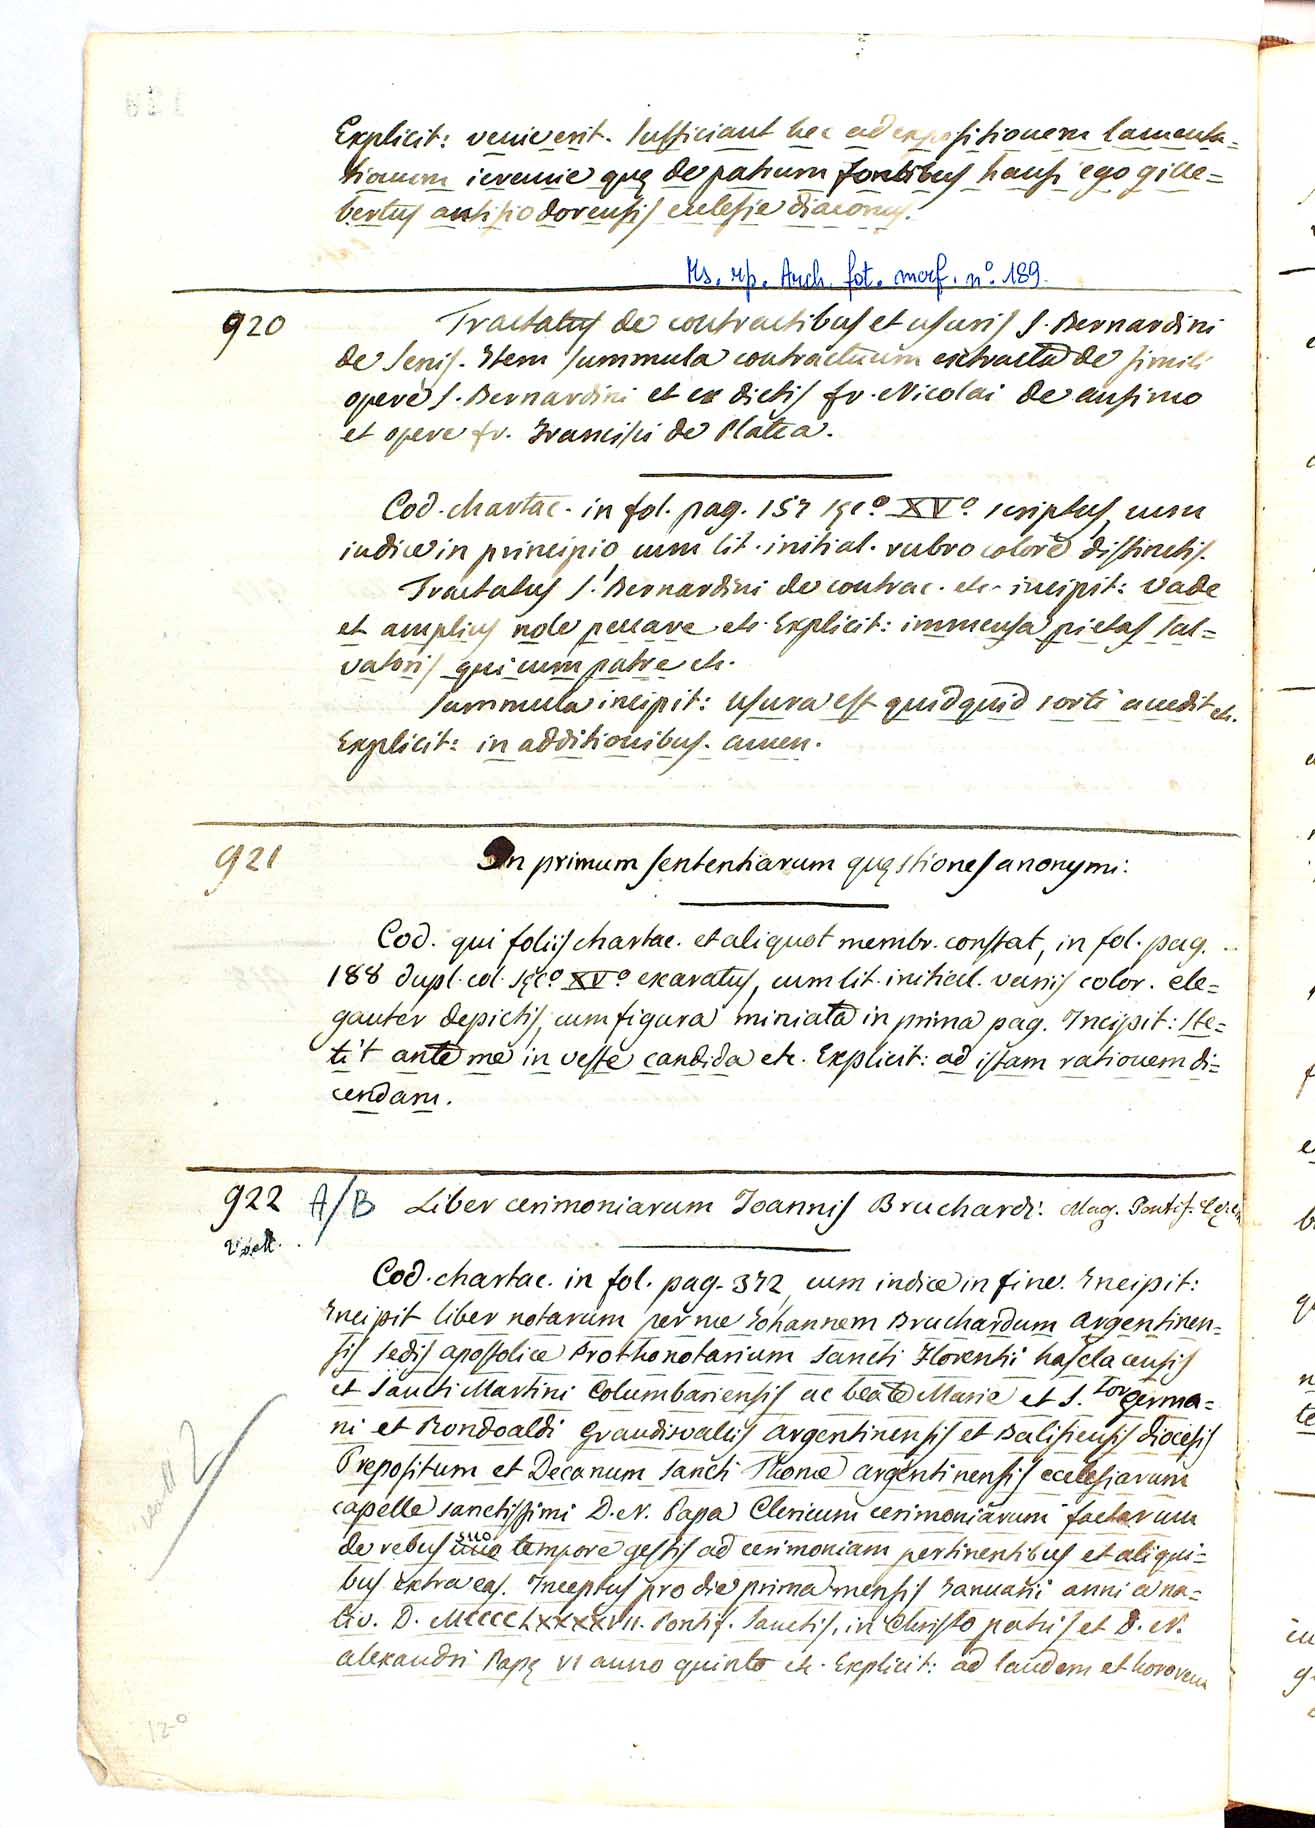 Explicit: venie erit. Sufficiant hec ad expositionem lamenta=
tionum ieremie quę de patrum fontibus hausi ego gille=
bertus antisiodorensis eclesie diaconus.
Ms. rip. Arch. fot. morf. n.º 189.
920 Tractatus de contractibus et usuris S. Bernardini
de Senis. Item summula contractuum extracta de simili
opere S. Bernardini et ex dictis fr. Nicolai de ausimo
et opere fr. Francisci de Platea.
Cod. chartac. in fol. pag. 157 sęc.º XV.º scriptus, cum
indice in principio cum lit. initial. rubro colore distinctis.
Tractatus S. Bernardini de contrac. etc. incipit: Vade
et amplius nole peccare etc. Explicit: immensa pietas sal=
vatoris qui cum patre etc.
Summula incipit: usura est quidquid sorti accedit etc.
Explicit: in additionibus. amen.
921 In primum sententiarum quęstiones anonymi:
Cod. qui foliis chartac. et aliquot membr. constat, in fol. pag.
188 dupl. col. sęc.º XV.º exaratus, cum lit. initial. variis color. ele=
ganter depictis, cum figura miniata in prima pag. Incipit: Ste=
tit ante me in veste candida etc. Explicit: ad istam rationem di=
cendam.
922 A/B Liber cerimoniarum Joannis Bruchardi: Mag. Pontif.
Cod. chartac. in fol. pag. 372, cum indice in fine. Incipit:
Incipit liber notarum per me Iohannem Bruchardum argentinen=
sis sedis apostolice Prothonotarium Sancti Florentii hasclacensis
et Sancti Martini Columbariensis ac beate Marie et S.tor germa=
ni et Rondoaldi Grandisvallis argentinensis et Basiliensis diocesis
Prepositum et Decanum Sancti Thome argentinensis ecclesiarum
capelle sanctissimi D. N. Papa Clericum cerimoniarum factarum
de rebus suo tempore gestis ad cerimoniam pertinentibus et aliqui=
bus extra eas. Inceptus pro die prima mensis Ianuarii anni a na=
tiv. D. MCCCCLXXXXVII. Pontif. Sanctis. in Christo patris et D. N.
alexandri Papę VI anno quinto etc. Explicit: ad laudem et honorem